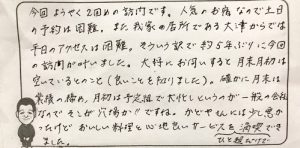 今回ようやく2回めの訪問です。人気のお店なので土日
の予約は困難。また我家の居所である大津からでは
平日のアクセスは困難。そういう訳で約5年ぶりに今回
の訪問が叶いました。大将にお伺いすると月末月初は
空いているとのこと(良いことを知りました)。確かに月末は
業績の締め、月初は予定確で大忙しというのが一般の会社
なのでそこが穴場か〃ですね。かどやさんには少し急か
ったけど おいしい料理と心地良いサービスを満喫でき
ました。
ひと超えだけで